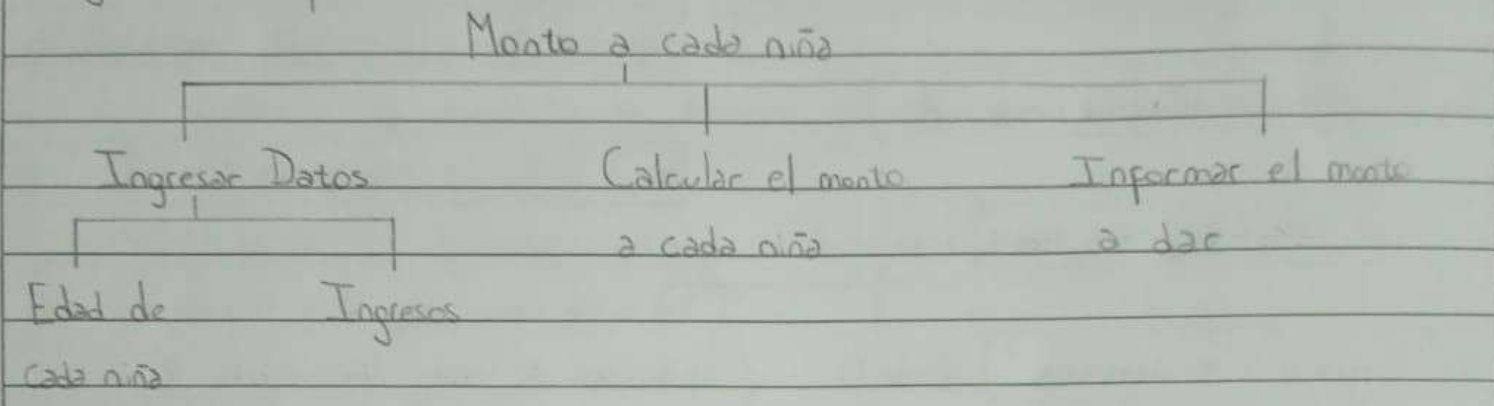 Monto a cada niña
Ingresar Datos
Calcular el monto
a cada niña
Informar el monto
a dar
Edad de
cada niña
Ingresos